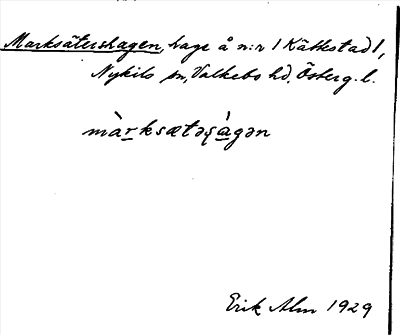 Marksätershagen, hage å n:r 1 Kättstad 1,
Nykils sn, Valkebo hd, Österg. l.
màr̲ksætəʂà̲gən
Erik Alm 1929